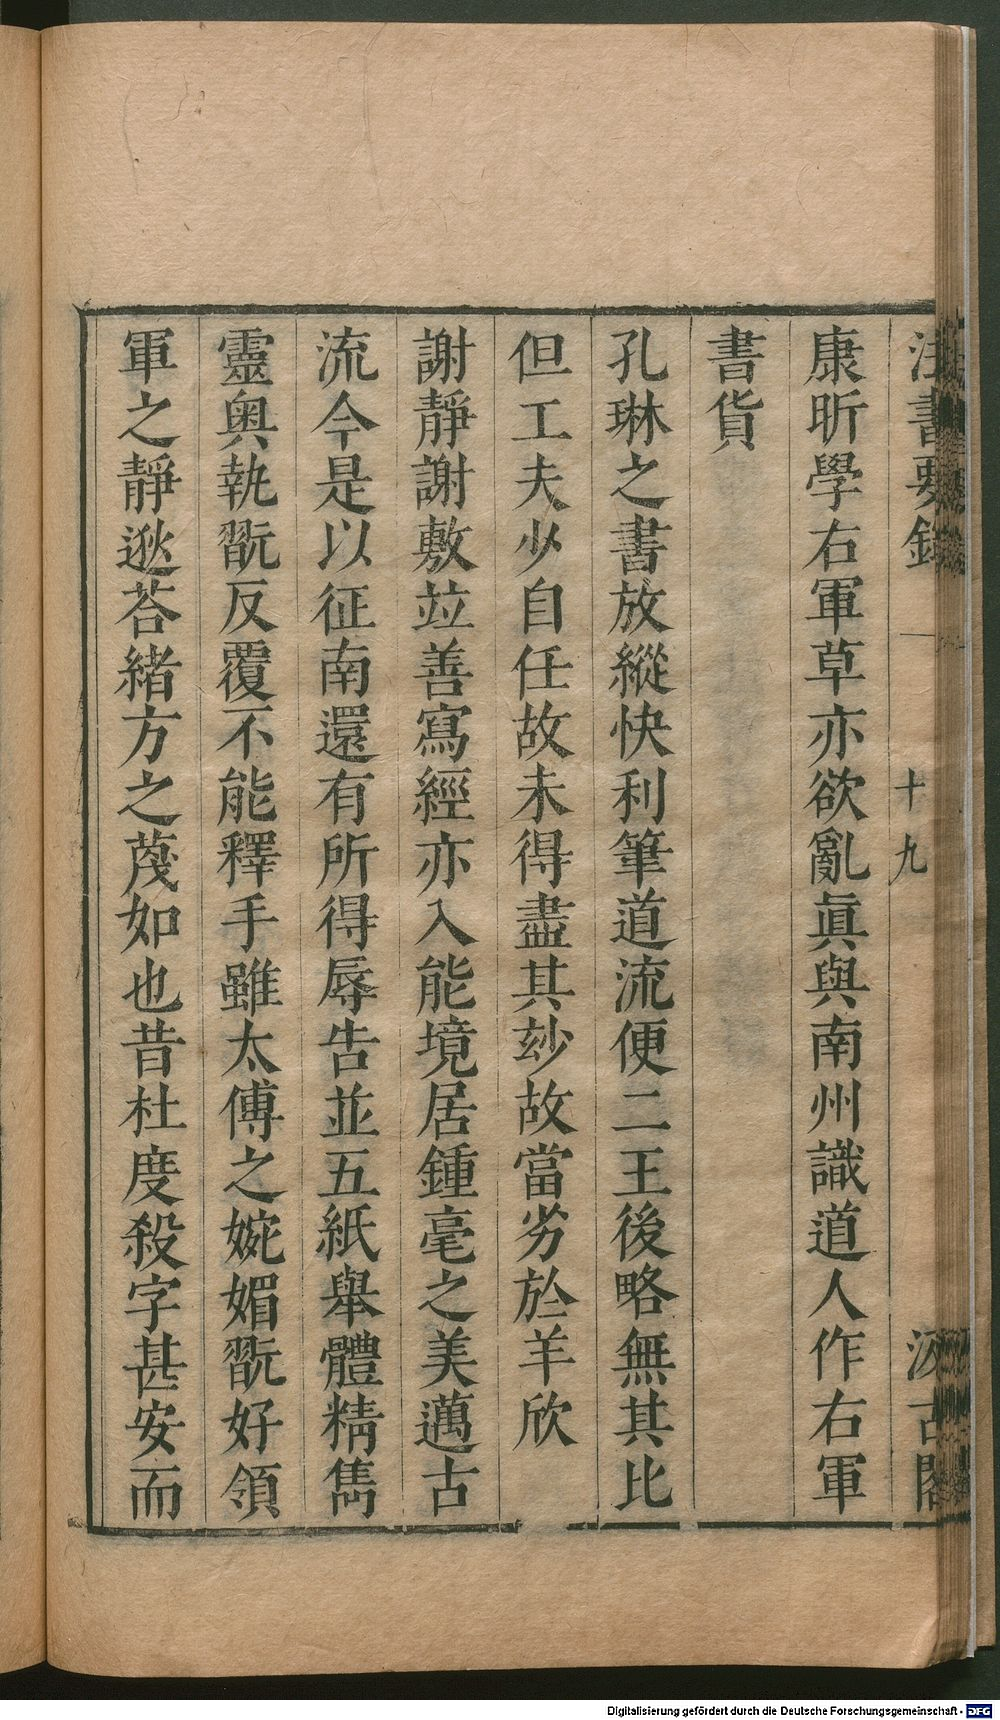 法書要錄
一
十九
汲古閣
康昕學右軍草亦欲亂眞與南州識道人作右軍
書貨
孔琳之書放縱快利筆道流便二王後略無其比
但工夫少自任故未得盡其玅故當劣於羊欣
謝靜謝敷竝善寫經亦入能境居鍾毫之美邁古
流今是以征南還有所得辱告並五紙舉體精雋
靈奥執翫反覆不能釋手雖太傅之婉媚翫好領
軍之靜逖荅緒方之蔑如也昔杜度殺字甚安而
Digitalisierung gefördert durch die Deutsche Forschungsgemeinschaft - DFG